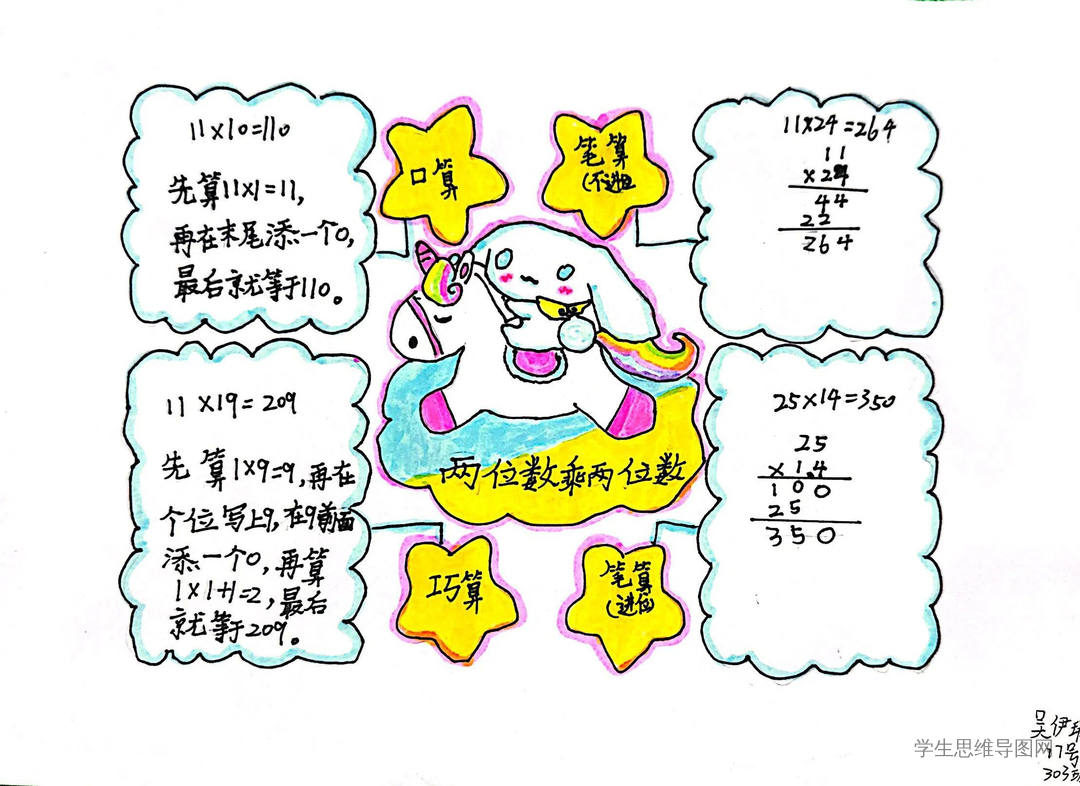 11×10=110
先算11×1=11,
再在末尾添一个0,
最后就等于110。
口算
笔算
(不进位
11×24=264
11
×24
44
22
264
两位数乘两位数
11×19=209
先算1×9=9,再在
个位写上9,在9前面
添一个0,再算
1×1+1=2,最后
就等于209。
巧算
笔算
(进位)
25×14=350
25
×14
100
25
350
吴伊
17号
303
学生思维导图网